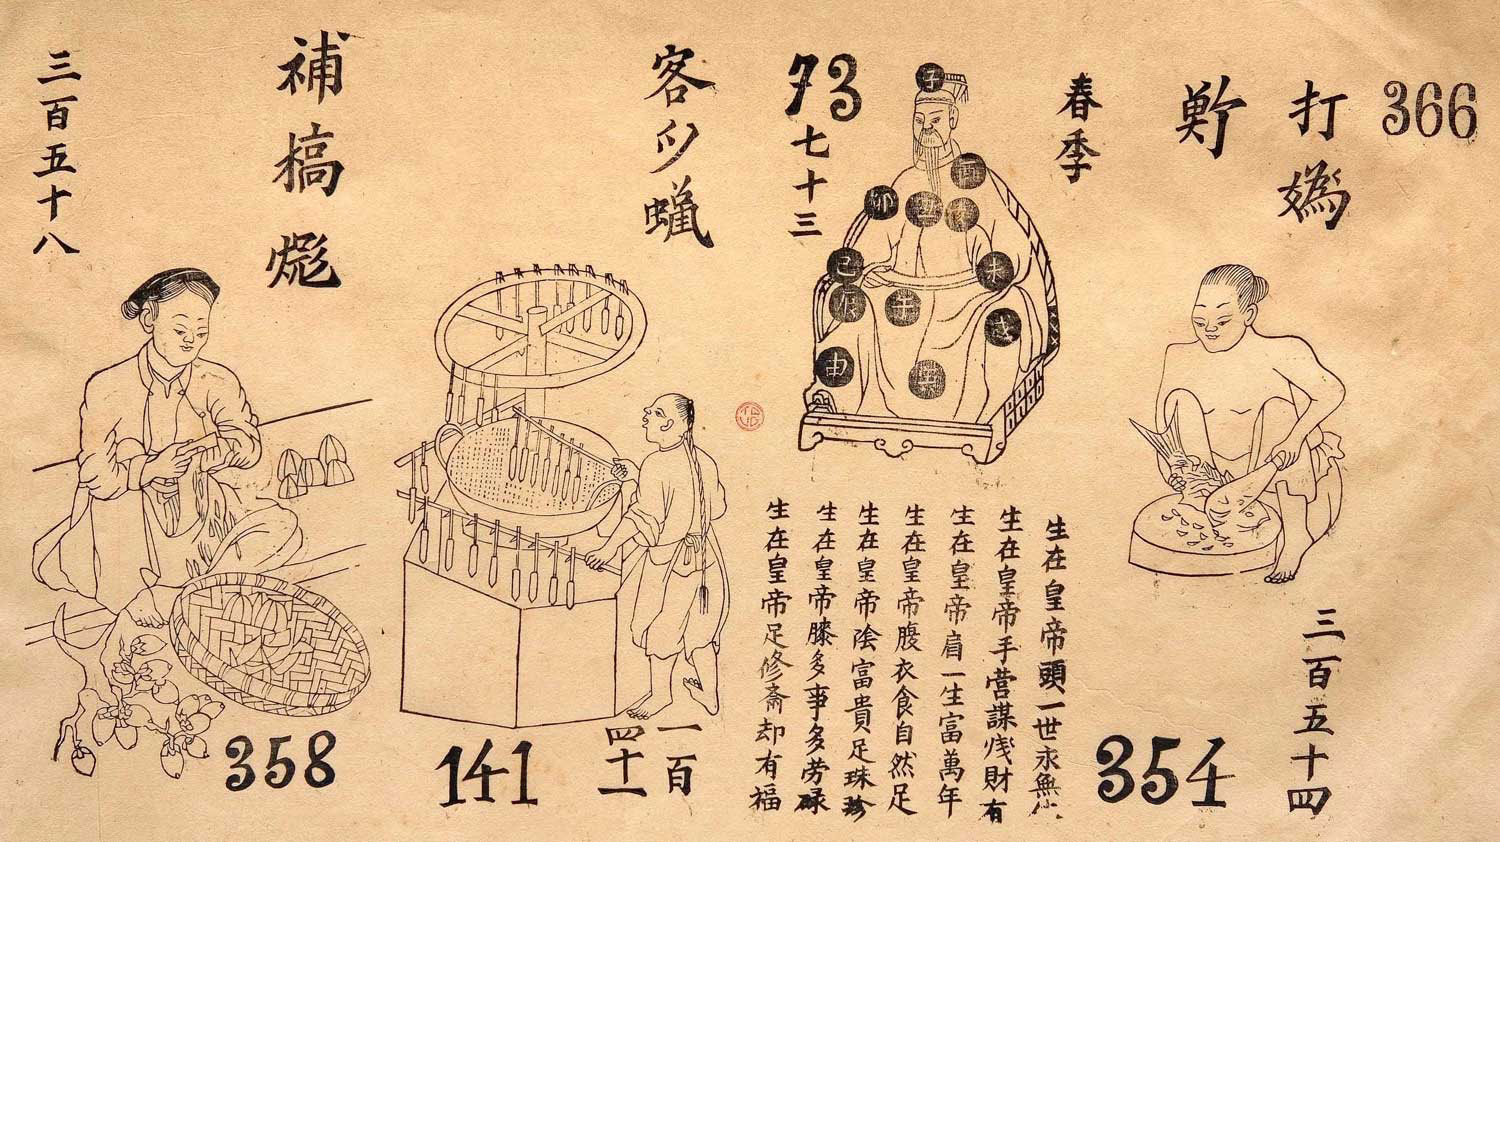 366
打鄬
三百五十四
354
春季
73
七十三
子
卯
己
午
未
戌
申
生在皇帝頭一世永無
生在皇帝手营謀㷝財有
生在皇帝肩一生富萬年
生在皇帝腹衣食自然足
生在皇帝陰富貴足珠珍
生在皇帝膝多事多劳碌
生在皇帝足修斋却有福
客
蠟
一百
四十一
141
補槁
三百五十八
358